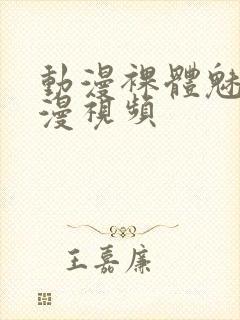 動漫裸體魅
漫視頻
王嘉廉